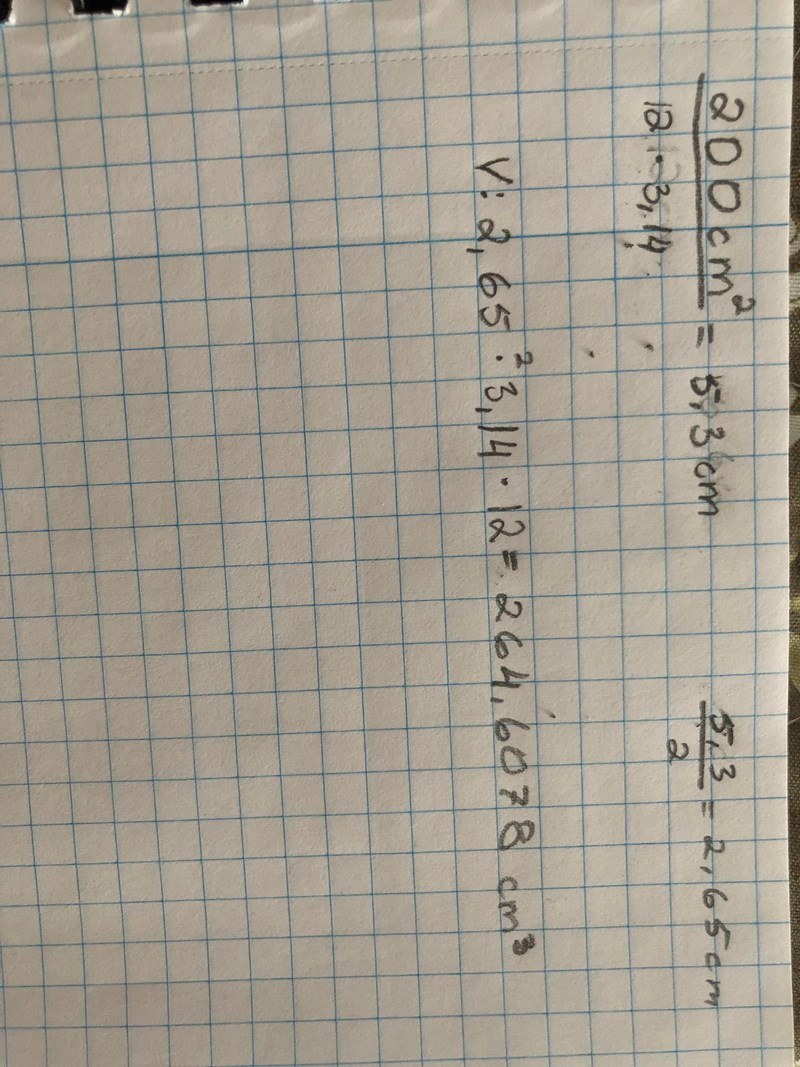 200cm² / 12 · 3,14 = 5,3cm
5,3 / 2 = 2,65cm
V: 2,65² · 3,14 · 12 = 264,6078 cm³